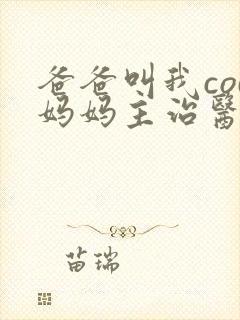 爸爸叫我co
妈妈主治醫
苗瑞